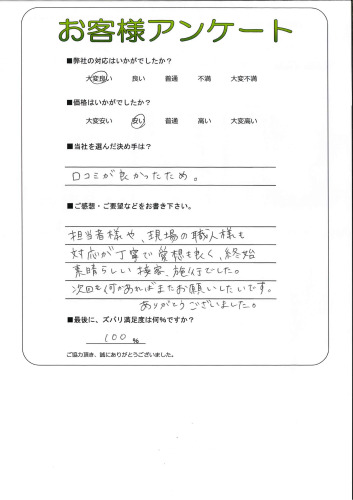 お客様アンケート
■弊社の対応はいかがでしたか？
大変良い 良い 普通 不満 大変不満
■価格はいかがでしたか？
大変安い 安い 普通 高い 大変高い
■当社を選んだ決め手は？
口コミが良かったため。
■ご感想・ご要望などをお書き下さい。
担当者様や、現場の職人様も
対応が丁寧で愛想も良く、終始
素晴らしい接客、施行でした。
次回も何かあればまたお願いしたいです。
ありがとうございました。
■最後に、ズバリ満足度は何％ですか？
100 ％
ご協力頂き、誠にありがとうございました。